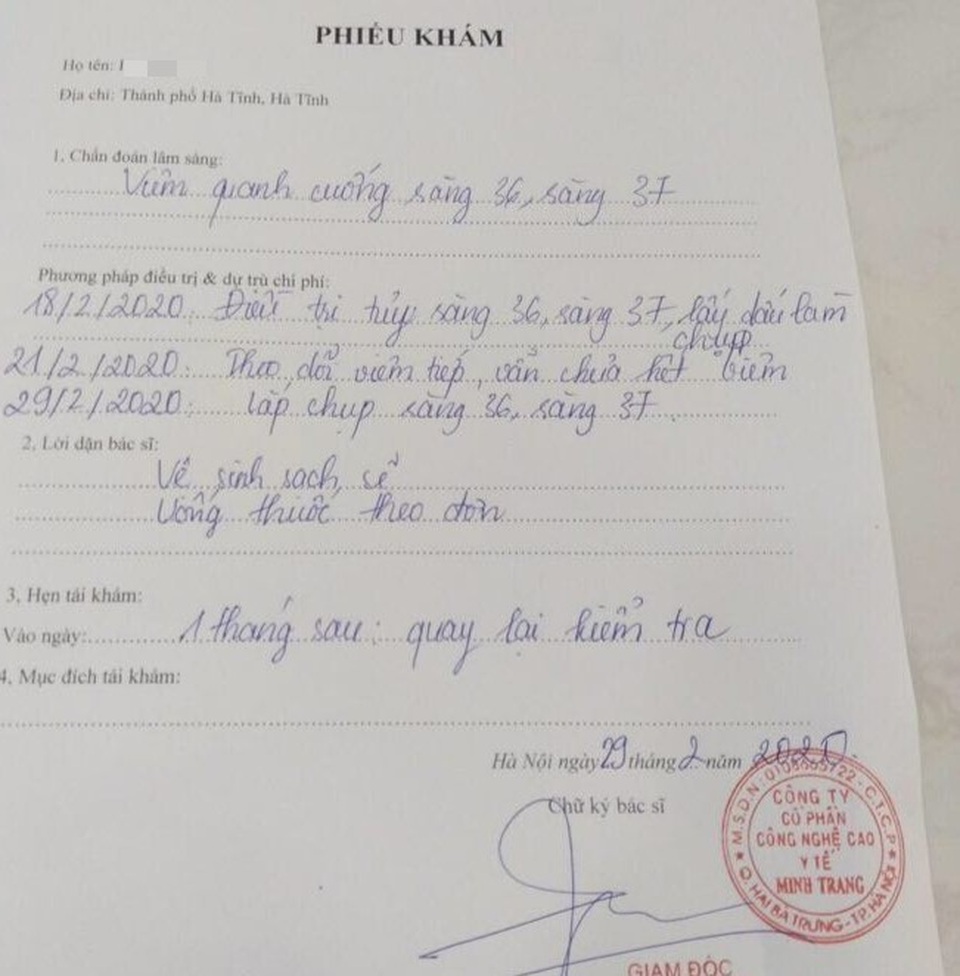 PHIẾU KHÁM
Họ tên:
Địa chỉ: Thành phố Hà Tĩnh, Hà Tĩnh
1. Chẩn đoán lâm sàng:
Viêm quanh cuống răng 36, răng 37
Phương pháp điều trị & dự trù chi phí:
18/2/2020: Điều trị tủy răng 36, răng 37, lấy dấu làm
chụp
21/2/2020: Theo dõi viêm tiếp, vẫn chưa hết viêm
29/2/2020: lắp chụp răng 36, răng 37.
2. Lời dặn bác sĩ:
Vệ sinh sạch sẽ
Uống thuốc theo đơn
3. Hẹn tái khám:
Vào ngày: 1 tháng sau: quay lại kiểm tra
4. Mục đích tái khám:
Hà Nội ngày 29 tháng 2 năm 2020.
Chữ ký bác sĩ
CÔNG TY
CỔ PHẦN
CÔNG NGHỆ CAO
Y TẾ
MINH TRANG
Q. HAI BÀ TRƯNG - TP. HÀ NỘI
GIÁM ĐỐC